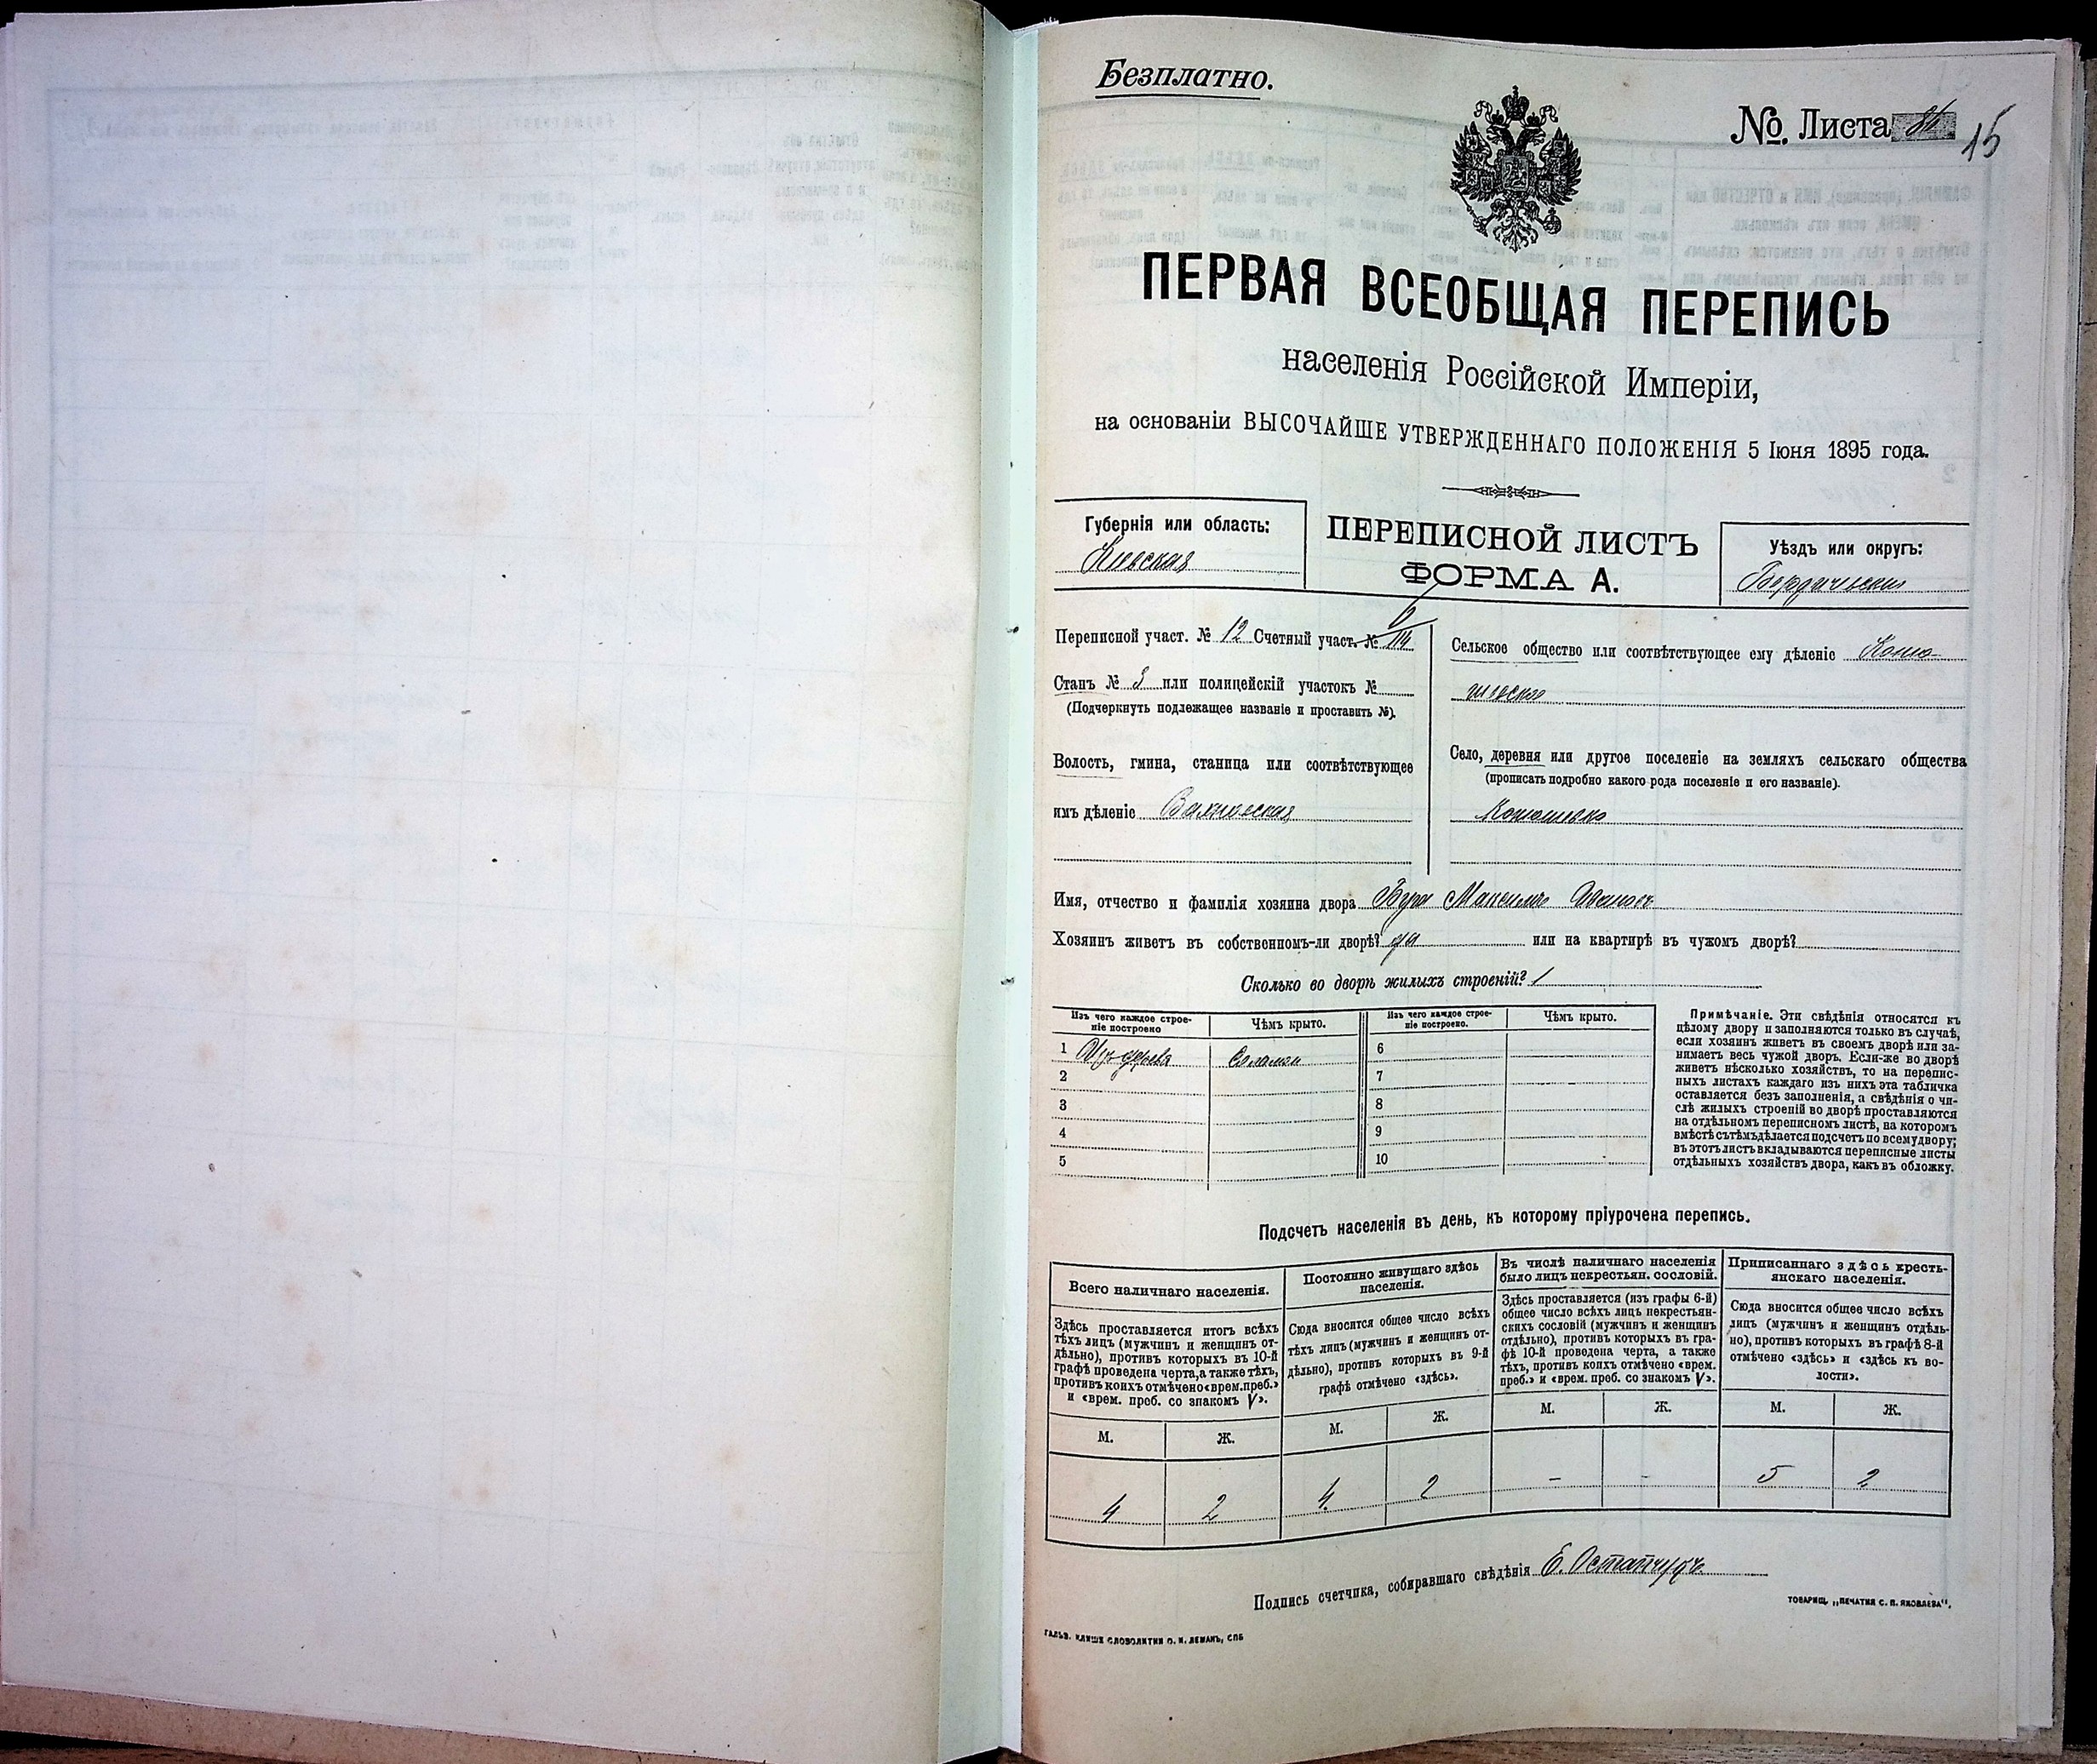 Безплатно.
№ Листа 15
ПЕРВАЯ ВСЕОБЩАЯ ПЕРЕПИСЬ
населенія Россійской Имперіи,
на основаніи ВЫСОЧАЙШЕ УТВЕРЖДЕННАГО ПОЛОЖЕНІЯ 5 Іюня 1895 года.
Губернія или область:
Кіевская
ПЕРЕПИСНОЙ ЛИСТЪ
ФОРМА А.
Уѣздъ или округъ:
Бердичевскій
Переписной участ. № 12 Счетный участ. №
Станъ № 3 или полицейскій участокъ №
(Подчеркнуть подлежащее названіе и проставить №).
Волость, гмина, станица или соотвѣтствующее
имъ дѣленіе
Сельское общество или соотвѣтствующее ему дѣленіе Коню-
шевское
Село, деревня или другое поселеніе на земляхъ сельскаго общества
(прописать подробно какого рода поселеніе и его названіе).
Имя, отчество и фамилія хозяина двора Бура Максимъ Ивановъ
Хозяинъ живетъ въ собственномъ-ли дворѣ? да или на квартирѣ въ чужомъ дворѣ?
Сколько во дворѣ жилыхъ строеній? 1
Изъ чего каждое строе-
ніе построено
Чѣмъ крыто.
Изъ чего каждое строе-
ніе построено.
Чѣмъ крыто.
1 Изъ дерева Соломой 6
2 7
3 8
4 9
5 10
Примѣчаніе. Эти свѣдѣнія относятся къ
цѣлому двору и заполняются только въ случаѣ,
если хозяинъ живетъ въ своемъ дворѣ или за-
нимаетъ весь чужой дворъ. Если-же во дворѣ
живетъ нѣсколько хозяйствъ, то на перепис-
ныхъ листахъ каждаго изъ нихъ эта табличка
оставляется безъ заполненія, а свѣдѣнія о чи-
слѣ жилыхъ строеній во дворѣ проставляются
на отдѣльномъ переписномъ листѣ, на которомъ
вмѣстѣ съ тѣмъ дѣлается подсчетъ по всему двору;
въ этотъ листъ вкладываются переписные листы
отдѣльныхъ хозяйствъ двора, какъ въ обложку.
Подсчетъ населенія въ день, къ которому пріурочена перепись.
Всего наличнаго населенія.
Здѣсь проставляется итогъ всѣхъ
тѣхъ лицъ (мужчинъ и женщинъ от-
дѣльно), противъ которыхъ въ 10-й
графѣ проведена черта, а также тѣхъ,
противъ коихъ отмѣчено «врем. преб.»
и «врем. преб. со знакомъ V».
Постоянно живущаго здѣсь
населенія.
Сюда вносится общее число всѣхъ
тѣхъ лицъ (мужчинъ и женщинъ от-
дѣльно), противъ которыхъ въ 9-й
графѣ отмѣчено «здѣсь».
Въ числѣ наличнаго населенія
было лицъ некрестьян. сословій.
Здѣсь проставляется (изъ графы 6-й)
общее число всѣхъ лицъ некрестьян-
скихъ сословій (мужчинъ и женщинъ
отдѣльно), противъ которыхъ въ гра-
фѣ 10-й проведена черта, а также
тѣхъ, противъ коихъ отмѣчено «врем.
преб.» и «врем. преб. со знакомъ V».
Приписаннаго здѣсь кресть-
янскаго населенія.
Сюда вносится общее число всѣхъ
лицъ (мужчинъ и женщинъ отдѣль-
но), противъ которыхъ въ графѣ 8-й
отмѣчено «здѣсь» и «здѣсь къ во-
лости».
М. Ж. М. Ж. М. Ж. М. Ж.
4 2 4 2 - - 5 2
Подпись счетчика, собиравшаго свѣдѣнія Е. Остапчукъ
ТОВАРИЩ. „ПЕЧАТНЯ С. П. ЯКОВЛЕВА“.
ГАЛЬВ. КЛИШЕ СЛОВОЛИТНИ О. И. ЛЕМАНЪ, СПБ